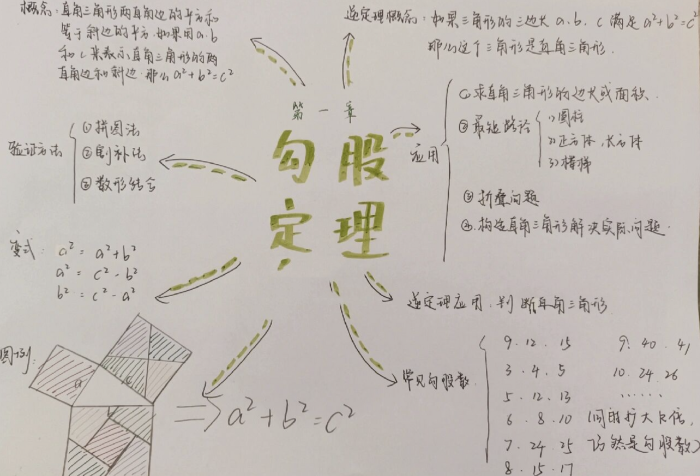 概念：直角三角形两直角边的平方和
等于斜边的平方.如果用a.b
和c来表示直角三角形的两
直角边和斜边.那么a²+b²=c²
逆定理概念：如果三角形的三边长a.b.c满足a²+b²=c²
那么这个三角形是直角三角形.
第一章
勾股
定理
验证方法
①拼图法
②割补法
③数形结合
应用
①求直角三角形的边长或面积.
②最短路径
1)圆柱
2)正方体.长方体
3)楼梯
③折叠问题
④.构造直角三角形解决实际问题.
变式：a²=a²+b²
a²=c²-b²
b²=c²-a²
逆定理应用.判断直角三角形
图例：
a
c
b
⇒a²+b²=c²
常见勾股数.
9.12.15 9.40.41
3.4.5 10.24.26
5.12.13 ......
6.8.10 (同时扩大n倍,
7.24.25 仍然是勾股数)
8.15.17